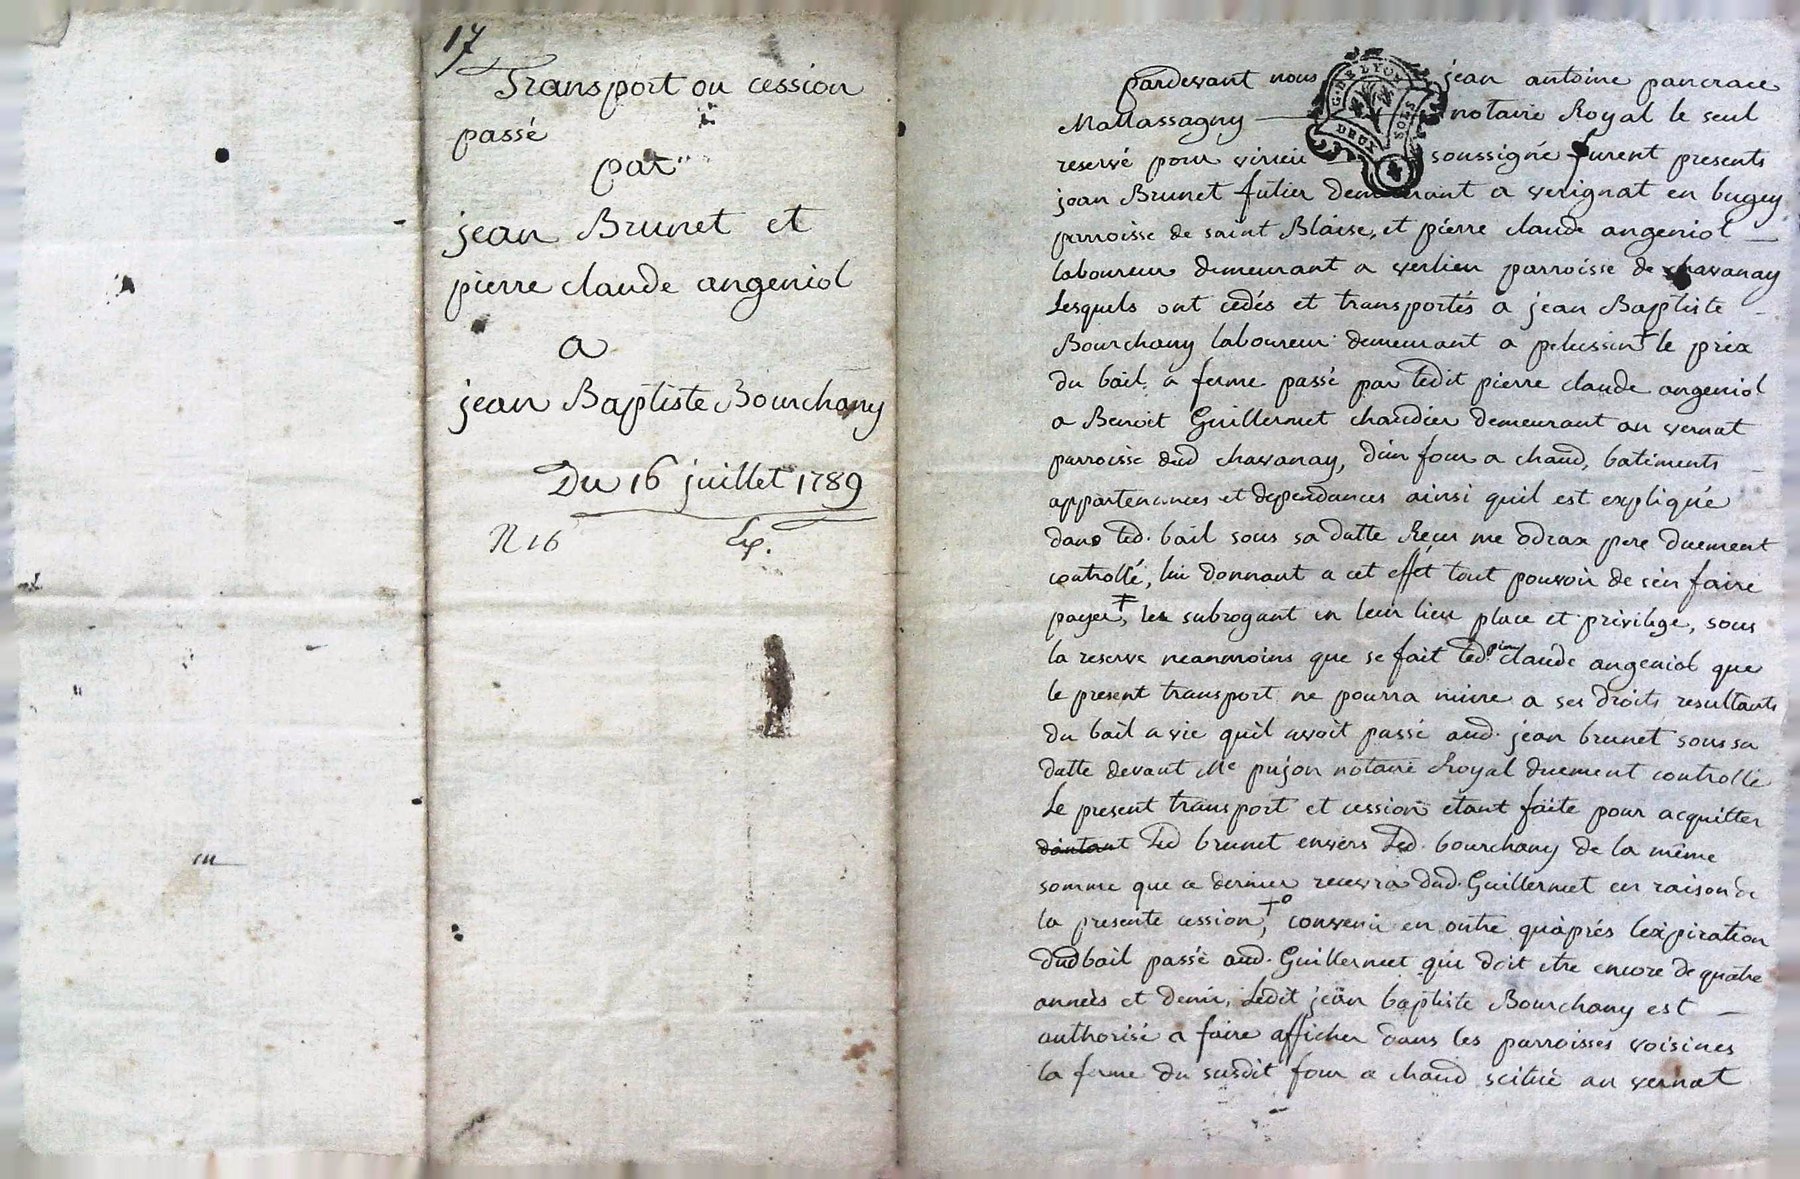 17
Transport ou cession
passé
par
jean Brunet et
pierre claude angeniol
a
jean Baptiste Bourchany
Du 16 juillet 1789
N 16
pardevant nous jean antoine pancrace
Mallassagny notaire Royal le seul
reservé pour virieu soussigné furent presents
jean Brunet futier demeurant a verignat en bugey
parroisse de saint Blaise, et pierre claude angeniol
laboureur demeurant a verlieu parroisse de chavanay
Lesquels ont cedés et transportés a jean Baptiste
Bourchany laboureur demeurant a pelussin le prix
du bail a ferme passé par ledit pierre claude angeniol
a Benoit Guillermet chaudier demeurant au vernat
parroisse dud chavanay, d'un four a chaud, batiments
appartenances et dependances ainsi quil est expliqué
dans led. bail sous sa datte Reçu me odrax pere duement
controllé, lui donnant a cet effét tout pouvoir de s'en faire
payer, les subrogant en leur lieu place et privilege, sous
la reserve neanmoins que se fait led. pierre claude angeniol que
le present transport ne pourra nuire a ses droits resultants
du bail a vie quil avoit passé aud. jean brunet sous sa
datte devant Me pujon notaire Royal duement controllé
Le present transport et cession etant faite pour acquitter
d'autant Led brunet envers Led. bourchany de la même
somme que ce dernier recevra dud. Guillermet en raison de
la presente cession, convenu en outre qu'aprés l'expiration
dud bail passé aud. Guillermet qui doit etre encore de quatre
années et demi, Ledit jean baptiste Bourchany est
authorisé a faire afficher dans les parroisses voisines
la ferme du susdit four a chaud scitué au vernat
G. DE LYON
DEUX SOLS